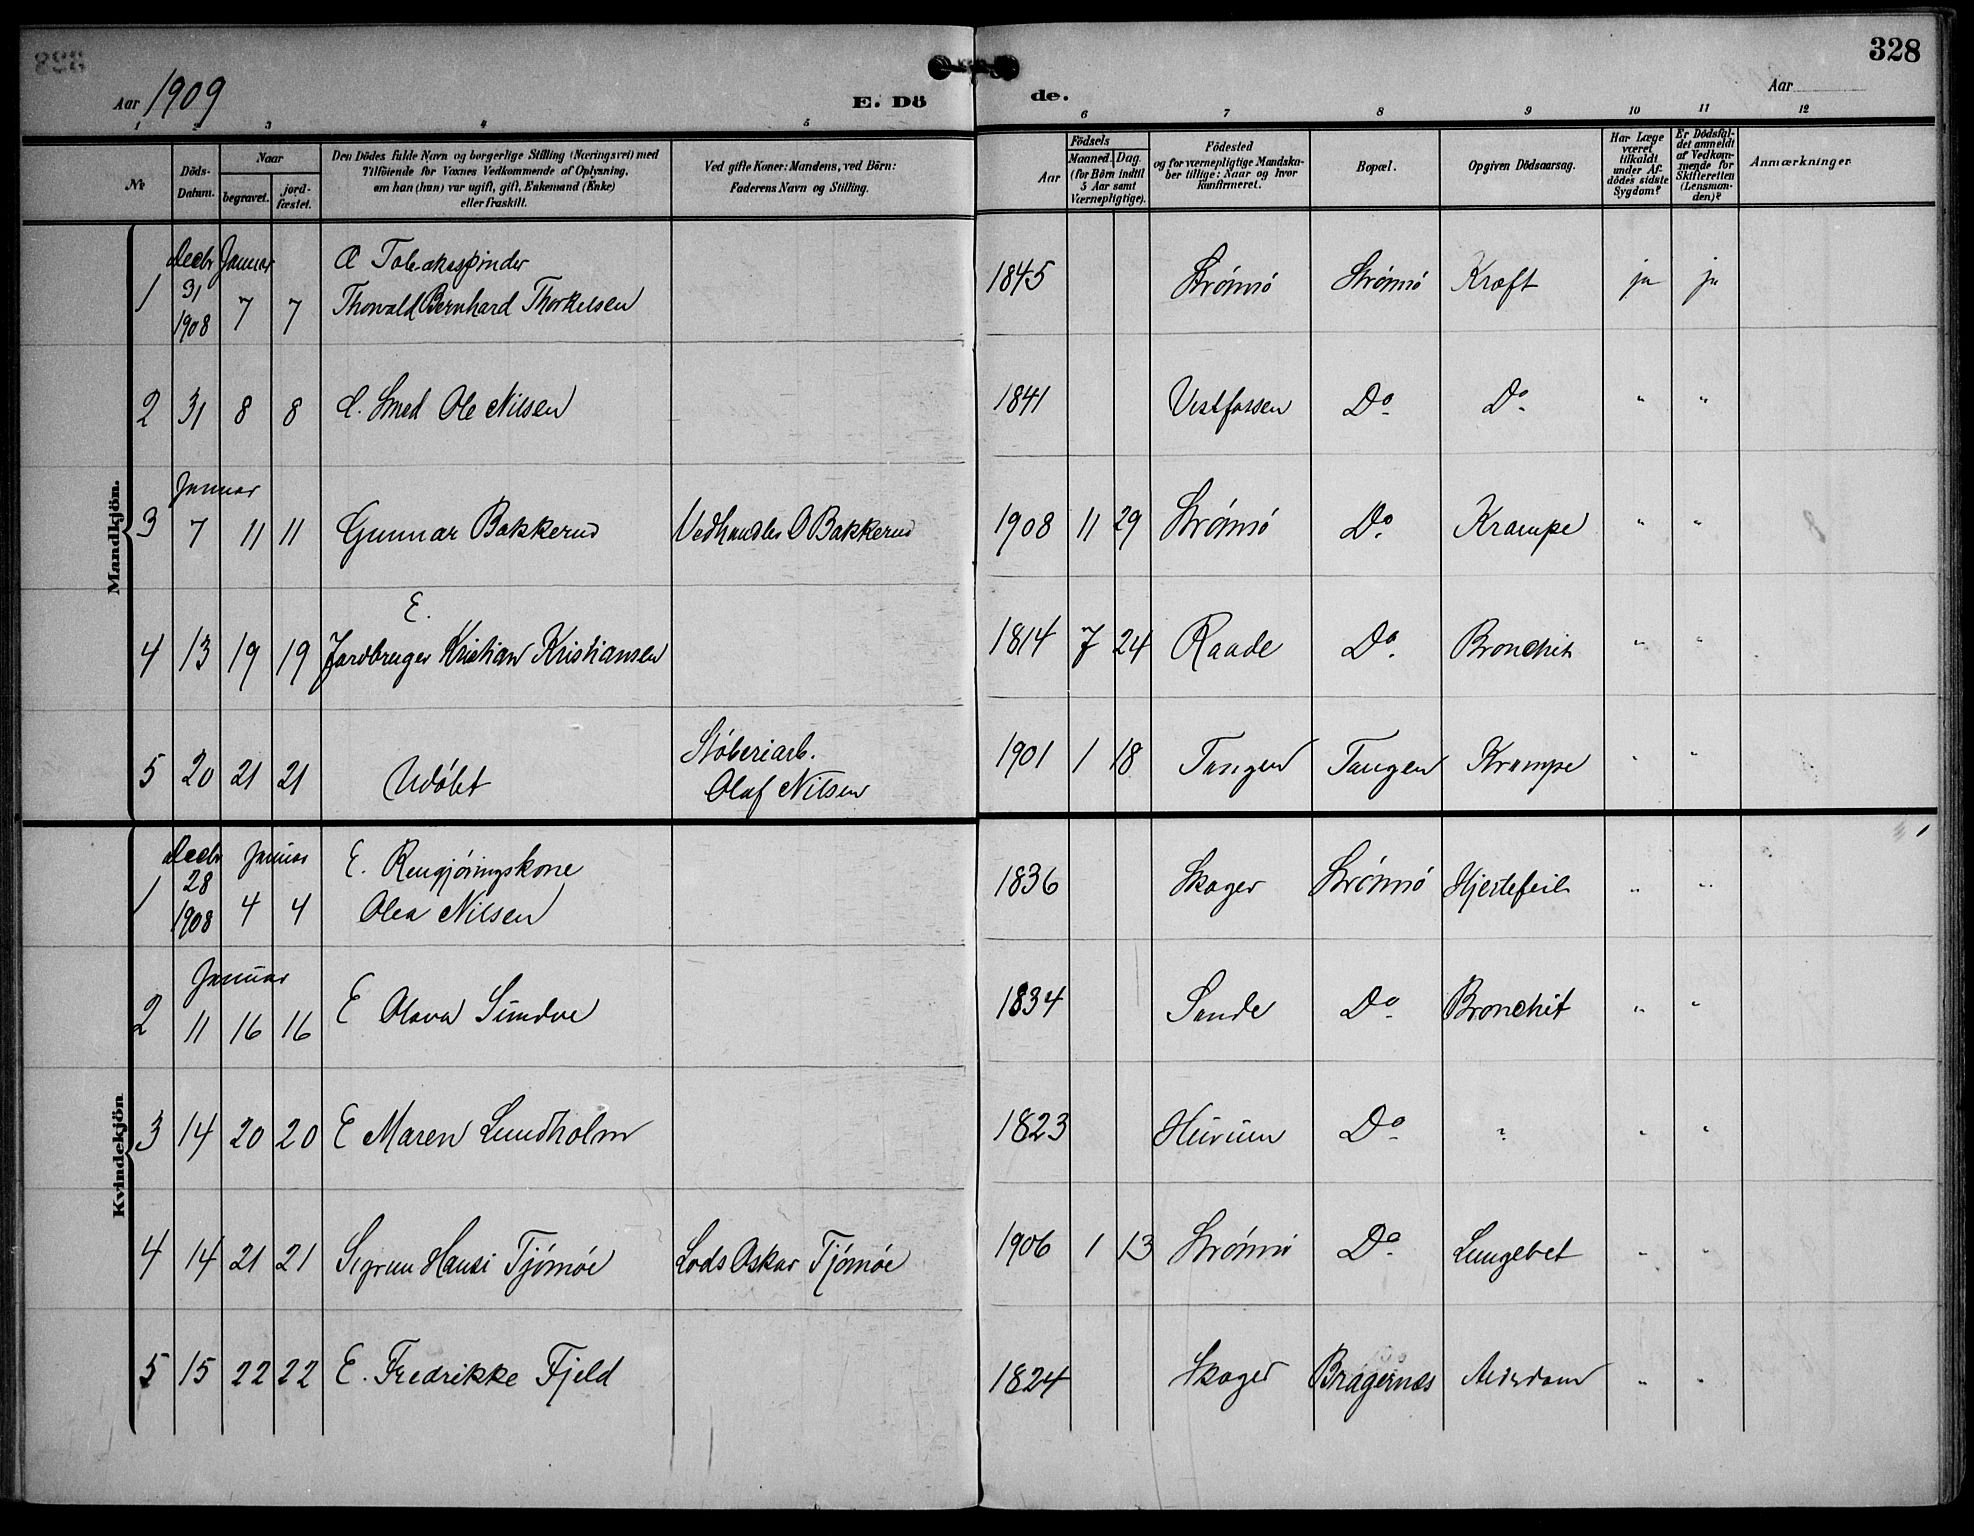 328
Aar 1909
E. Dö
de.
Aar
1 2 3 4 5 6 7 8 9 10 11 12
№
Döds-Datum.
Naar
begravet.
jord-fæstet.
Den Dödes fulde Navn og borgerlige Stilling (Næringsvei) med
Tilföiende for Voxnes Vedkommende af Oplysning,
om han (hun) var ugift, gift, Enkemand (Enke)
eller fraskilt.
Ved gifte Koner: Mandens, ved Börn:
Faderens Navn og Stilling.
Födsels
Aar
Maaned. Dag
(for Börn indtil
3 Aar samt
Værnepligtige).
Födested
og for værnepligtige Mandska-
ber tillige: Naar og hvor
konfirmeret.
Bopæl.
Opgiven Dödsaarsag.
Har Læge
været
tilkaldt
under Af-
dödes sidste
Sygdom?
Er Dödsfal-
det anmeldt
af Vedkom-
mende for
Skifteretten
(Lensman-
den)?
Anmærkninger
Mandkjön.
Decbr Januar
1 31 1908 7 7 Tobakspinder Thorvald Bernhard Thorkelsen 1845 Strømsø Strømsø Kræft ja ja
2 31 8 8 Smed Ole Nilsen 1841 Vestfossen Do Do " "
Januar
3 7 11 11 Gunnar Bakkerud Vedhandler O Bakkerud 1908 11 29 Strømsø Do. Krampe " "
E.
4 13 19 19 Jordbruger Kristian Kristiansen 1814 7 24 Raade Do. Bronchit " "
5 20 21 21 Udøbt Støberiarb. Olaf Nilsen 1901 1 18 Tangen Tangen Krampe " "
Kvindekjön
Decbr Januar
1 28 1908 4 4 E. Rengjøringskone Olea Nilsen 1836 Skoger Strømsø Hjertefeil " "
Januar
2 11 16 16 E Olava Sundve 1834 Sande Do Bronchit " "
3 14 20 20 E Maren Lundholm 1823 Hurum Do ? " "
4 14 21 21 Sigrun Hansi Tjømøe Lods Oskar Tjømøe 1906 1 13 Strømsø Do Lungebet " "
5 15 22 22 E. Fredrikke Fjeld 1824 Skoger Bragernæs Alderdom " "